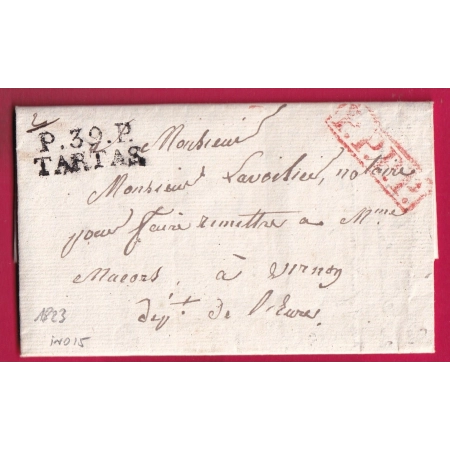 P.39.P.
TARTAS
P.P.P.P.
Monsieur
Monsieur Lavoilier, notaire
pour faire remettre a Mme
Macors, à Vernon
depᵗ. De l'Eure
1823
IND 15